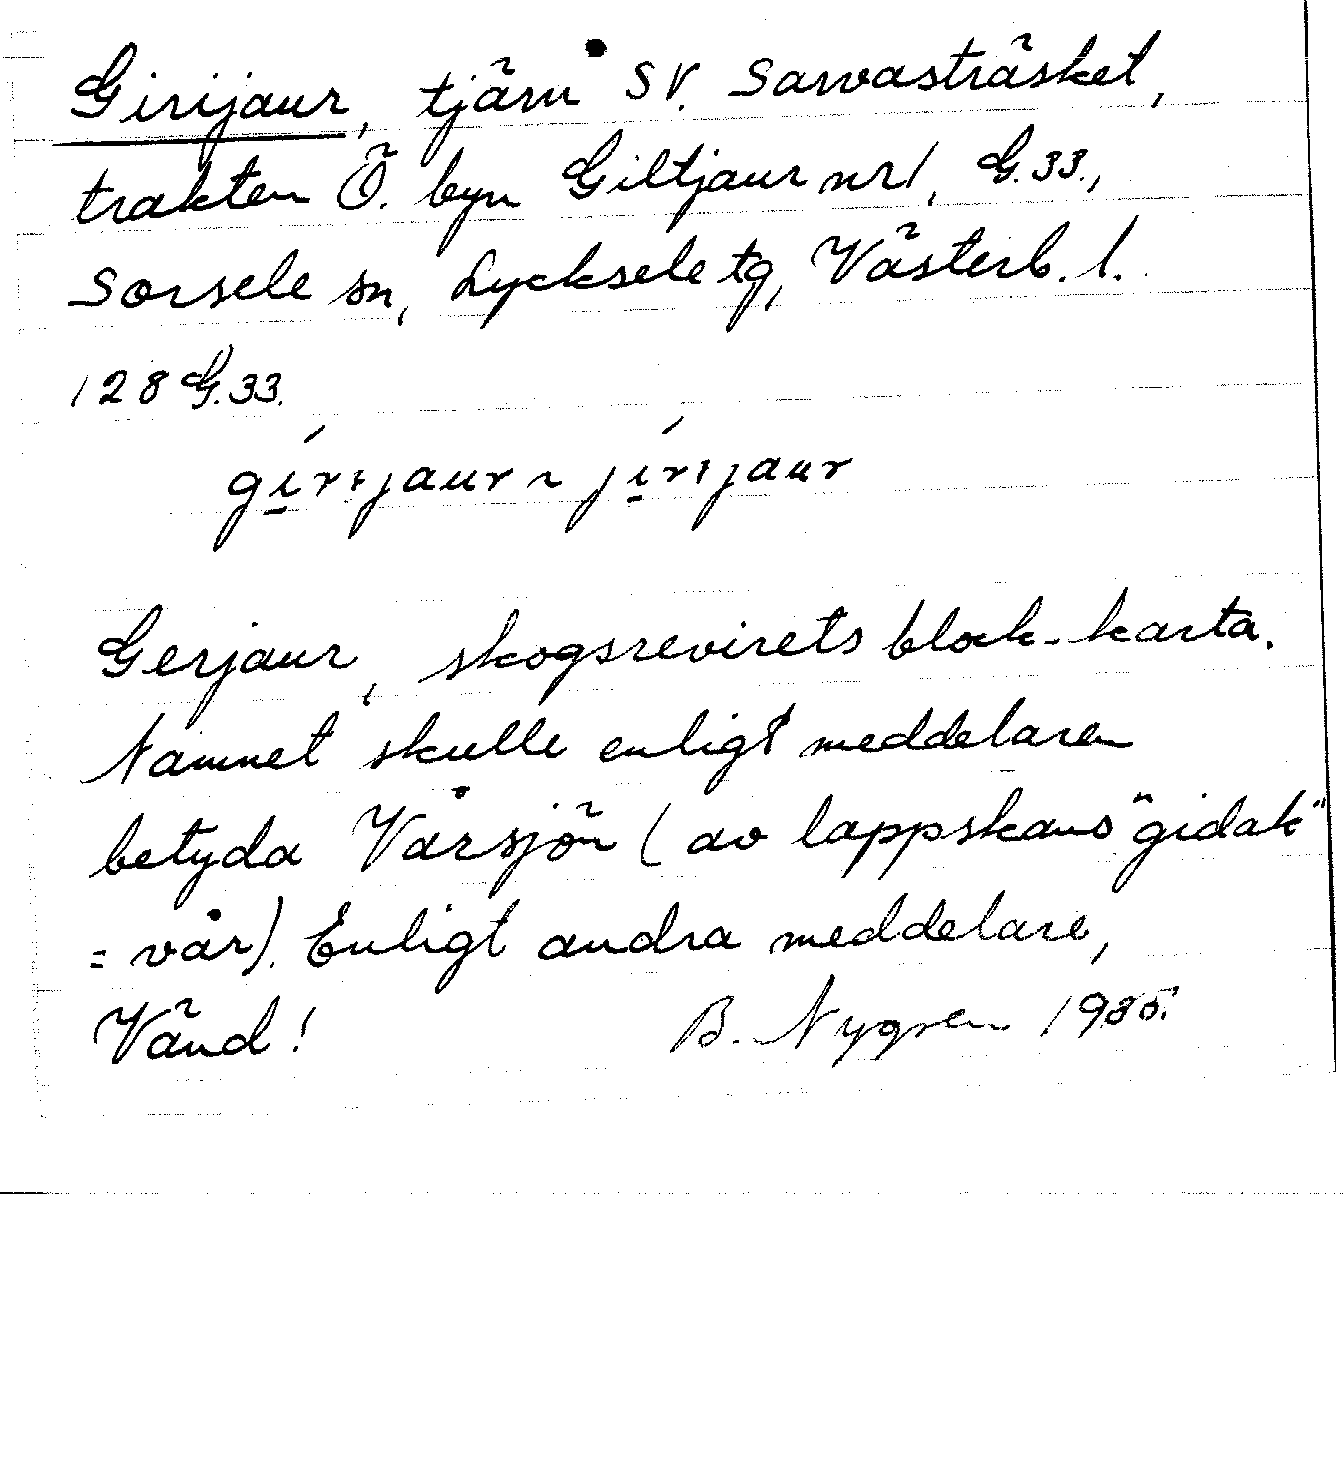 Girijaur, tjärn SV. Sarvasträsket,
trakten Ö. byn Giltjaur nr1, G.33.,
Sorsele sn, Lycksele tg, Västerb. l.
128 G.33.
gi̱rıjaur ~ ji̱rıjaur
Gerjaur, skogsrevirets block-karta.
Namnet skulle enligt meddelaren
betyda Vårsjön (av lappskans "gidak"
= vår). Enligt andra meddelare,
Vänd! B. Nygren 1935.